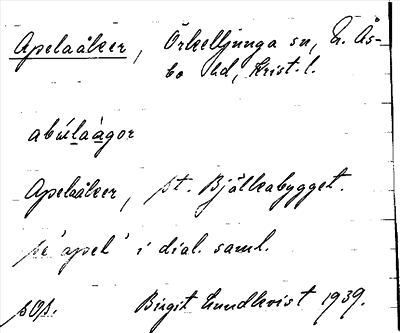 Apelaåker, Örkelljunga sn, N. Ås-
bo hd, Krist. l.
abúlaàgor
Apelåker, st. Bjälkabygget.
se 'apel' i dial. saml.
sOs. Birgit Lundkvist 1939.